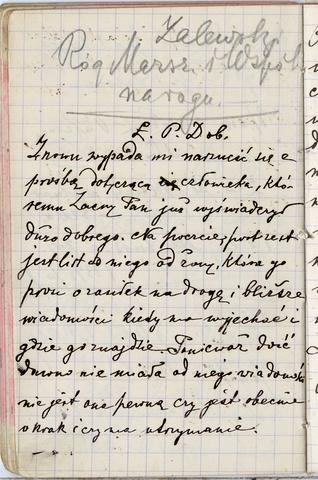 Zalewski
Róg Marsz. i Wspól.
na rogu.
Ł. P. Dob.
Znowu wypada mi narzucić się z
prośbą dotyczącą człowieka, któ-
remu Zacny Pan już wyświadczył
dużo dobrego. Na
jest list do niego od żony, która go
prosi o zaniek na drogę i bliższe
wiadomości kiedy ma wyjechać i
gdzie go znajdzie. Ponieważ dość
dawno nie miała od niego wiadomości
nie jest ona pewną czy jest obecnie
w Krak i czy ma utrzymanie.